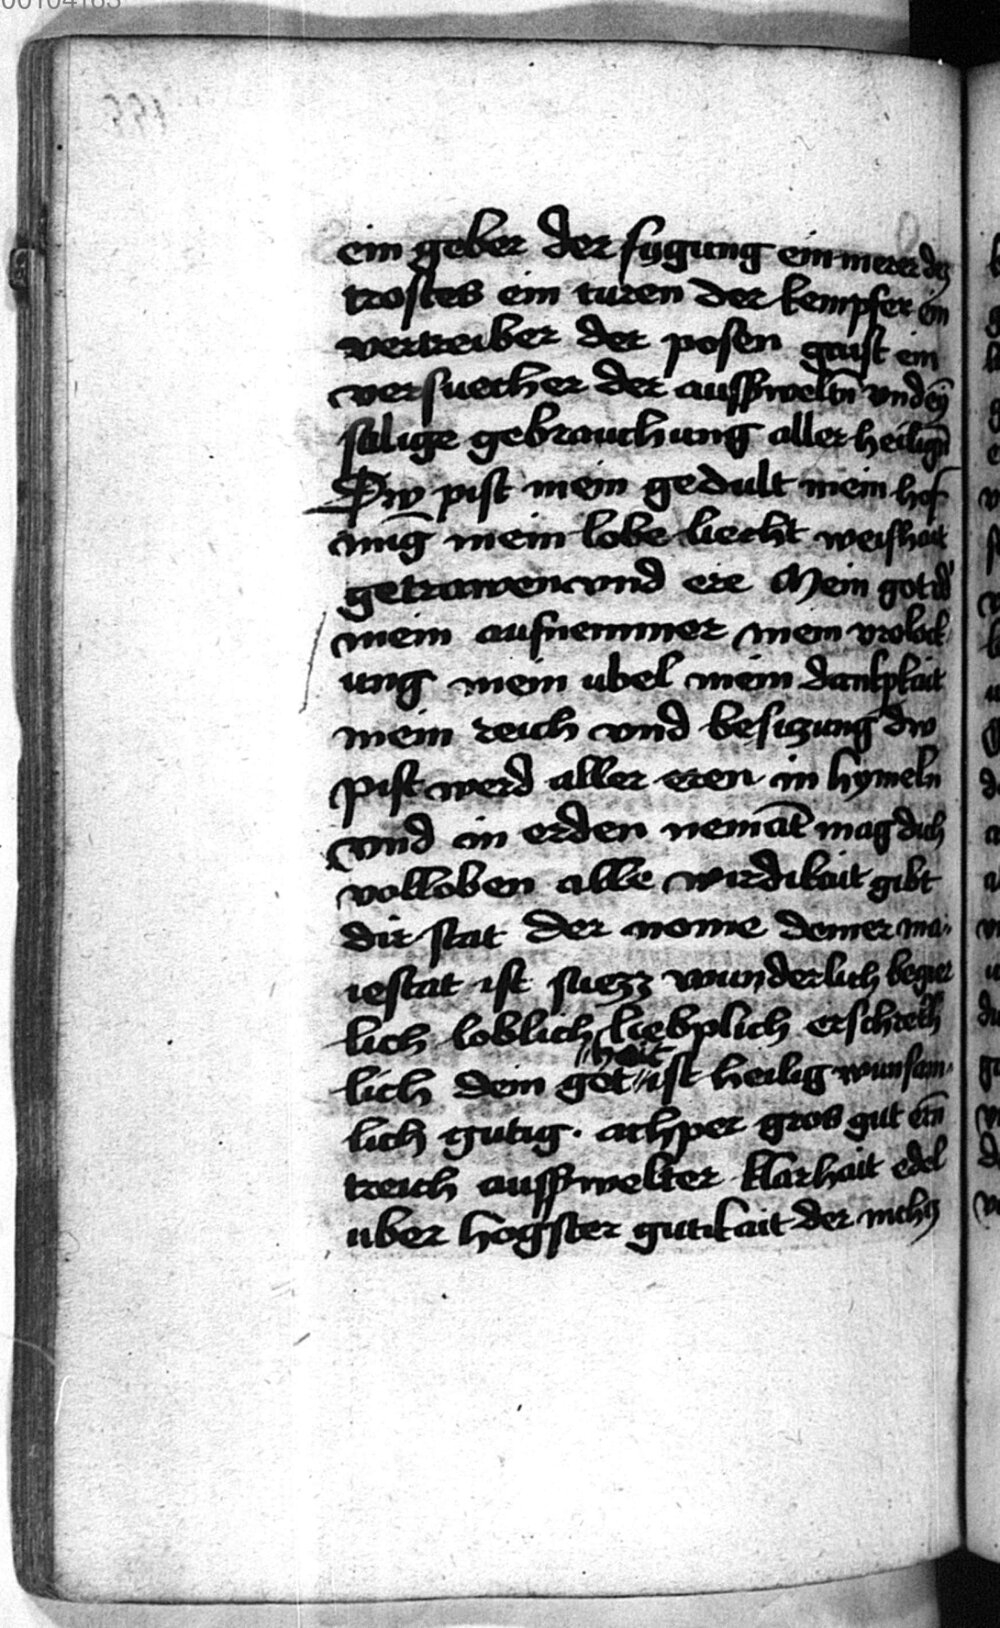 00104163
ein geber der sygung ein merer dez
trostes ein turen der kempfer ein
vertreiber der posen gaist ein
versuecher der ausserweltn̄ vnd eȳ
salige gebrauchung aller heilign̄
Dw pist mein gedult mein hof
nūg mein lobe liecht weishait
getrawen vnd ere Mein got
mein aufnemmer mein vrolock
ung mein ubel mein dankpkait
mein reich vnd besiczung dw
pist werd aller eren in hymeln
vnd in erden nemāt mag dich
volloben alle wirdikait gibt
dir stat der name deiner ma
iestat ist suezz wunderlich begier
lich loblich lieblich erschreck
lich dein got hait ist heilig wunsam
lich gutig . achper gros gut ein
treich ausserwelter klarhait edel
uber hogster gutikait der